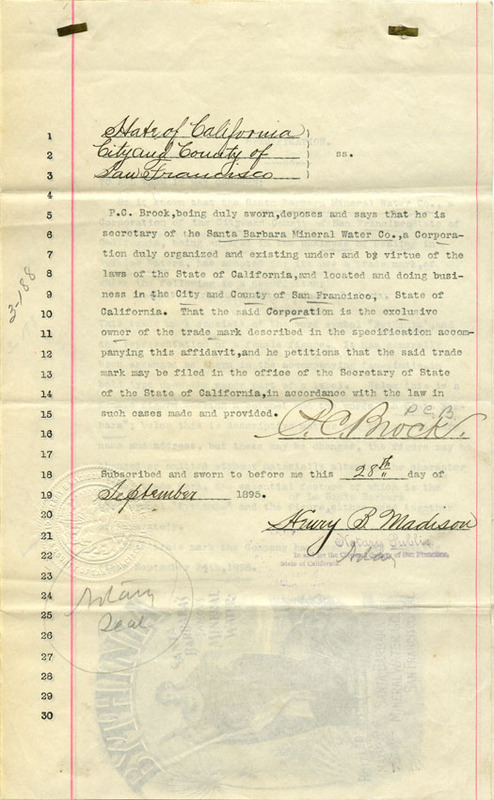 State of California
City and County of ss.
San Francisco
1
2
3
4
5
6
7
8
9
10
11
12
13
14
15
16
17
18
19
20
21
22
23
24
25
26
27
28
29
30
P.C. Brock,being duly sworn,deposes and says that he is
secretary of the Santa Barbara Mineral Water Co.,a Corpora-
tion duly organized and existing under and by virtue of the
laws of the State of California,and located and doing busi-
ness in the City and County of San Francisco, State of
California. That the said Corporation is the exclusive
owner of the trade mark described in the specification accom-
panying this affidavit,and he petitions that the said trade
mark may be filed in the office of the Secretary of State
of the State of California,in accordance with the law in
such cases made and provided.
P.C.B.
P.C. Brock.
Subscribed and sworn to before me this 28th day of
September 1895.
Henry B. Madison
Notary Public
In and for the City and County of San Francisco,
State of California.
Notary
Seal
3-188